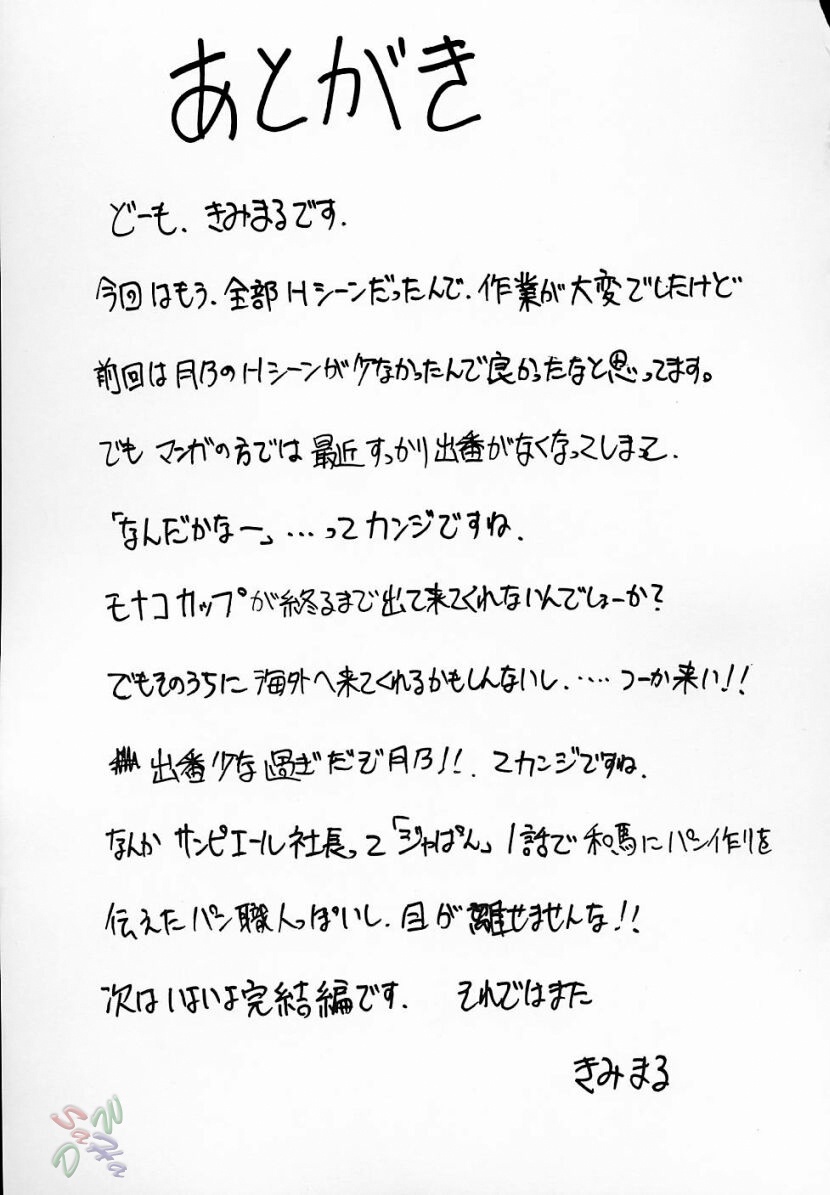 あとがき
どーも、きみまるです.
今回はもう、全部Hシーンだったんで、作業が大変でしたけど
前回は月乃のHシーンが少なかったんで良かったなと思ってます。
でも マンガの方では最近すっかり出番がなくなってしまって、
「なんだかなー」…ってカンジですね、
モナコカップが終るまで出て来てくれないんでしょーか?
でもそのうちに海外へ来てくれるかもしんないし、‥‥つーか来い!!
出番少な過ぎだぞ月乃!!、てカンジですね、
なんか サンピエール社長って「ジャぱん」1話で和馬にパン作りを
伝えたパン職人っぽいし、目が離せませんな!!
次はいよいよ完結編です. それではまた
きみまる
SaHa